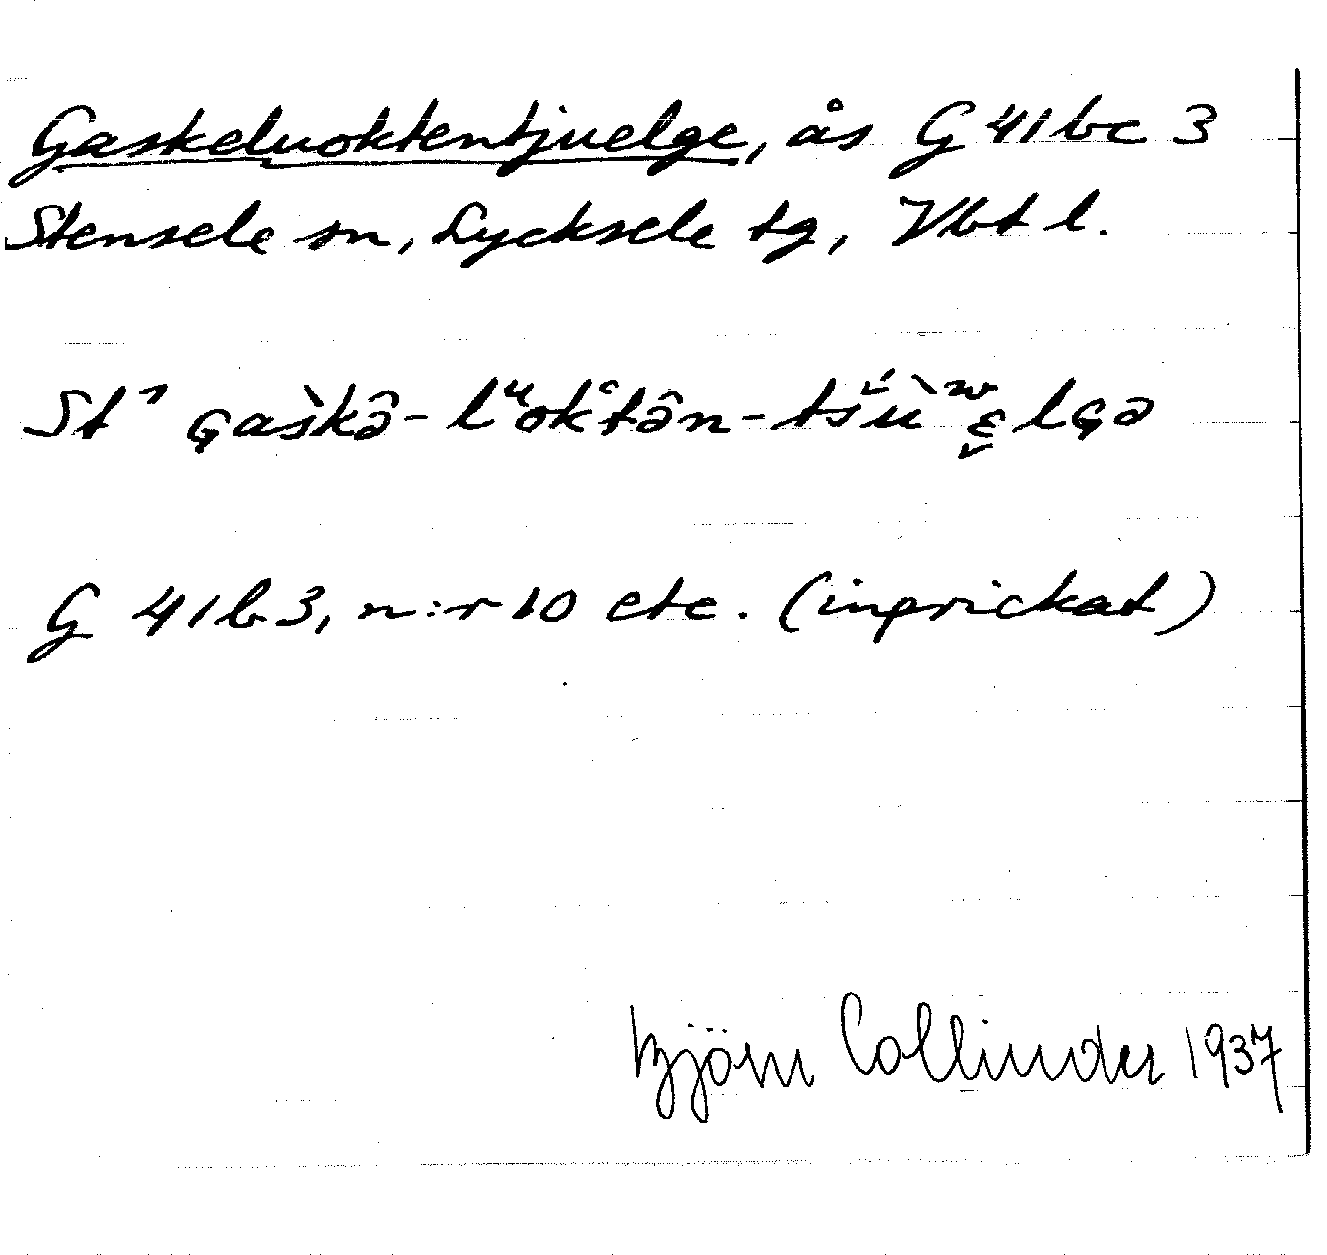 Gaskeluoktentjuelge, ås G 41 bc 3
Stensele sn, Lycksele tg, Vbt l.
St
G 41 b 3, n:r 10 etc. (inprickat)
Björn Collinder 1937